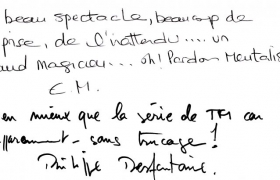 beau spectacle, beaucoup de
prise, de l'inattendu.... un
and magicien.... oh! Pardon Mentalis
C.M.
en mieux que la série de TF1 car
pparemment - sans trucage!
Philippe